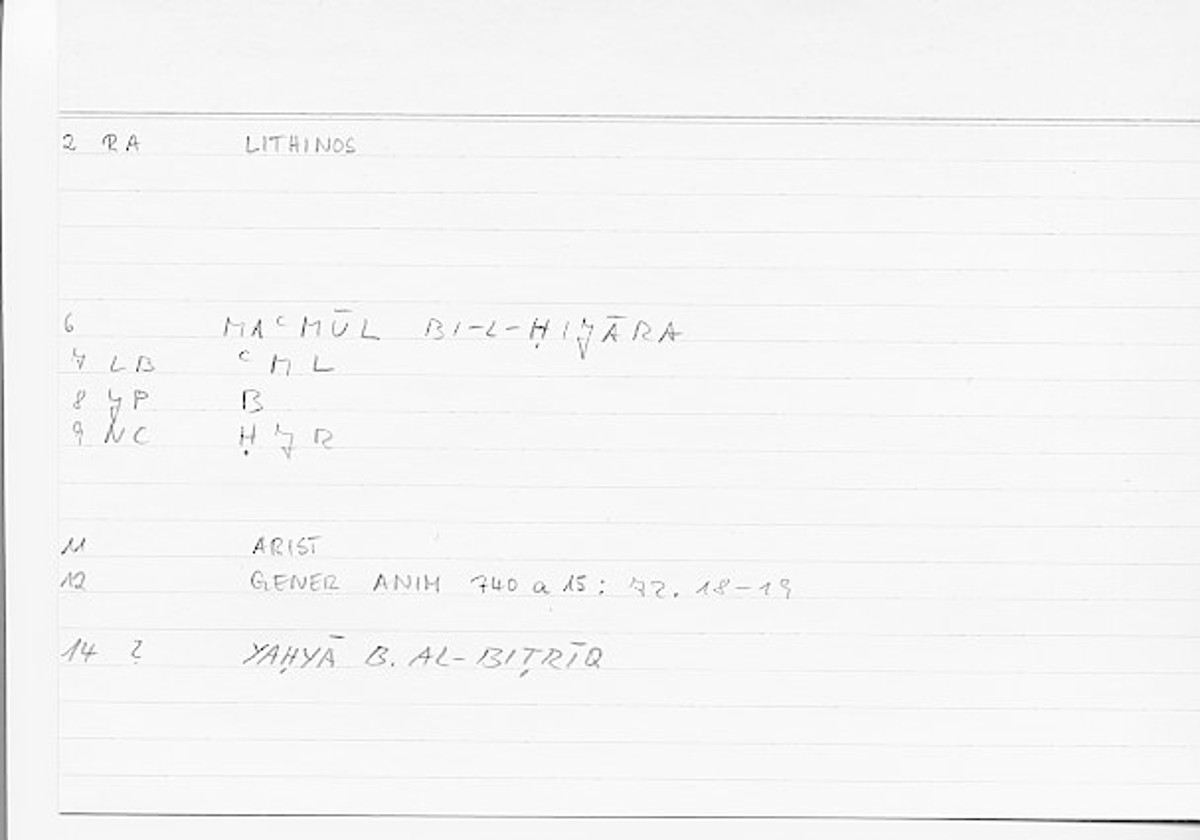 2 RA LITHINOS
6 MAᶜMŪL BI-L-ḤIJĀRA
7 LB ᶜML
8 JP B
9 NC ḤJR
11 ARIST
12 GENER ANIM 740 a 15: 72. 18-19
14 2 YAḤYĀ B. AL-BIṬRĪQ